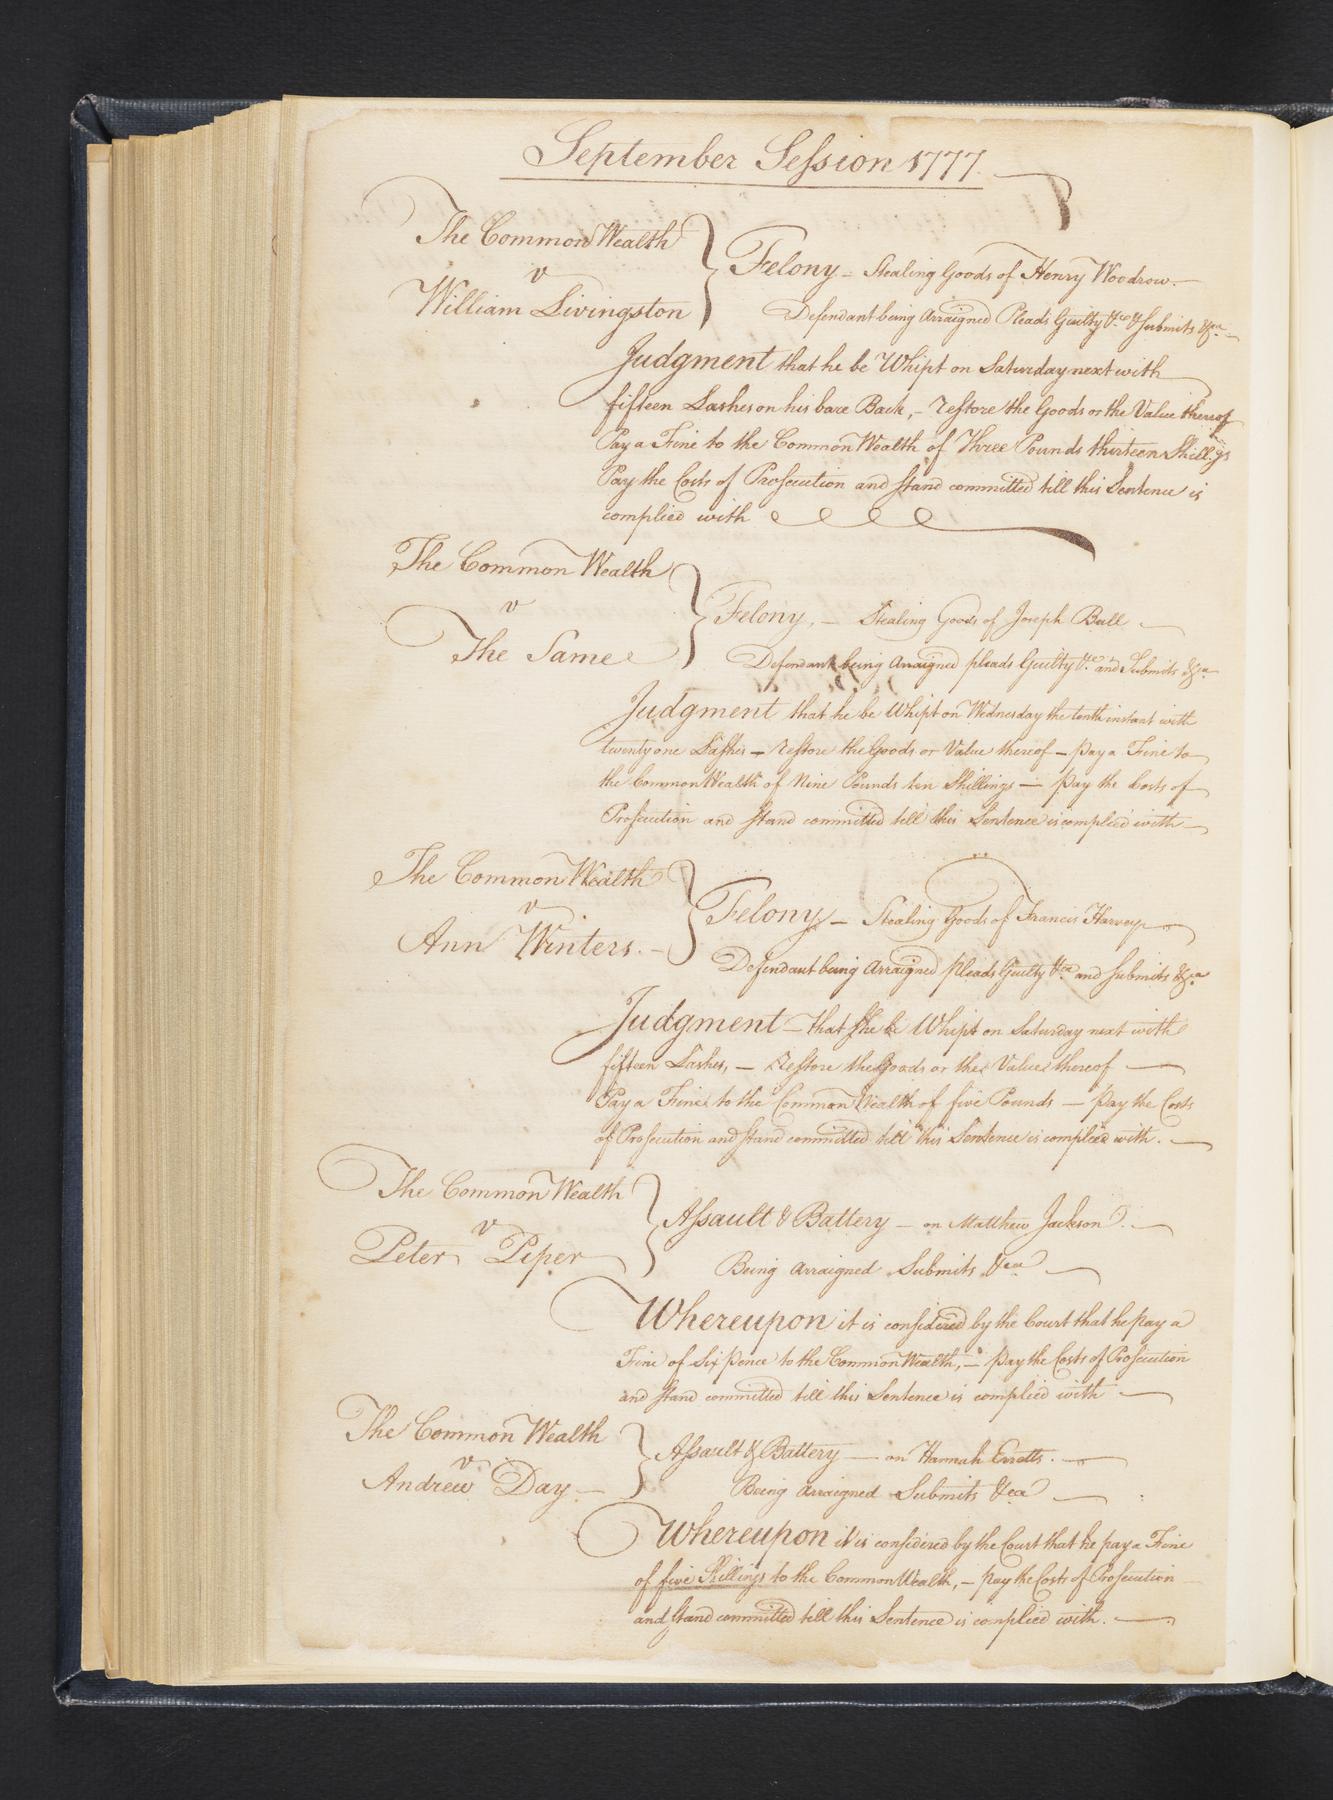 September Session 1777.
The Common Wealth
v
William Livingston
Felony - Stealing Goods of Henry Woodrow. -
Defendant being Arraigned Pleads Guilty &ca & Submits &ca -
Judgment that he be Whipt on Saturday next with
fifteen Lashes on his bare Back, - restore the Goods or the Value thereof
Pay a Fine to the Common Wealth of Three Pounds thirteen Shillgs
Pay the Costs of Prosecution and stand committed till this Sentence is
complied with
The Common Wealth
v
The Same
Felony, - Stealing Goods of Joseph Ball -
Defendant being Arraigned pleads Guilty &ca and Submits &ca -
Judgment that he be Whipt on Wednesday the tenth instant with
twenty one Lashes - restore the Goods or Value thereof - pay a Fine to
the Common Wealth of Nine Pounds ten Shillings - pay the Costs of
Prosecution and stand committed till this Sentence is complied with -
The Common Wealth
v
Ann Winters. -
Felony - Stealing Goods of Francis Harvey -
Defendant being Arraigned pleads Guilty &ca and Submits &ca
Judgment - that she be Whipt on Saturday next with
fifteen Lashes, - restore the Goods or the Value thereof -
Pay a Fine to the Common Wealth of five Pounds - pay the Costs
of Prosecution and stand committed till this Sentence is complied with. -
The Common Wealth
v
Peter Piper
Assault & Battery - on Matthew Jackson. -
Being Arraigned Submits &ca -
Whereupon it is considered by the Court that he pay a
Fine of Six pence to the Common Wealth, - pay the Costs of Prosecution
and stand committed till this Sentence is complied with -
The Common Wealth
v
Andrew Day -
Assault & Battery - on Hannah Erretts. -
Being Arraigned Submits &ca -
Whereupon it is considered by the Court that he pay a Fine
of five Shillings to the Common Wealth, - pay the Costs of Prosecution
and stand committed till this Sentence is complied with. -